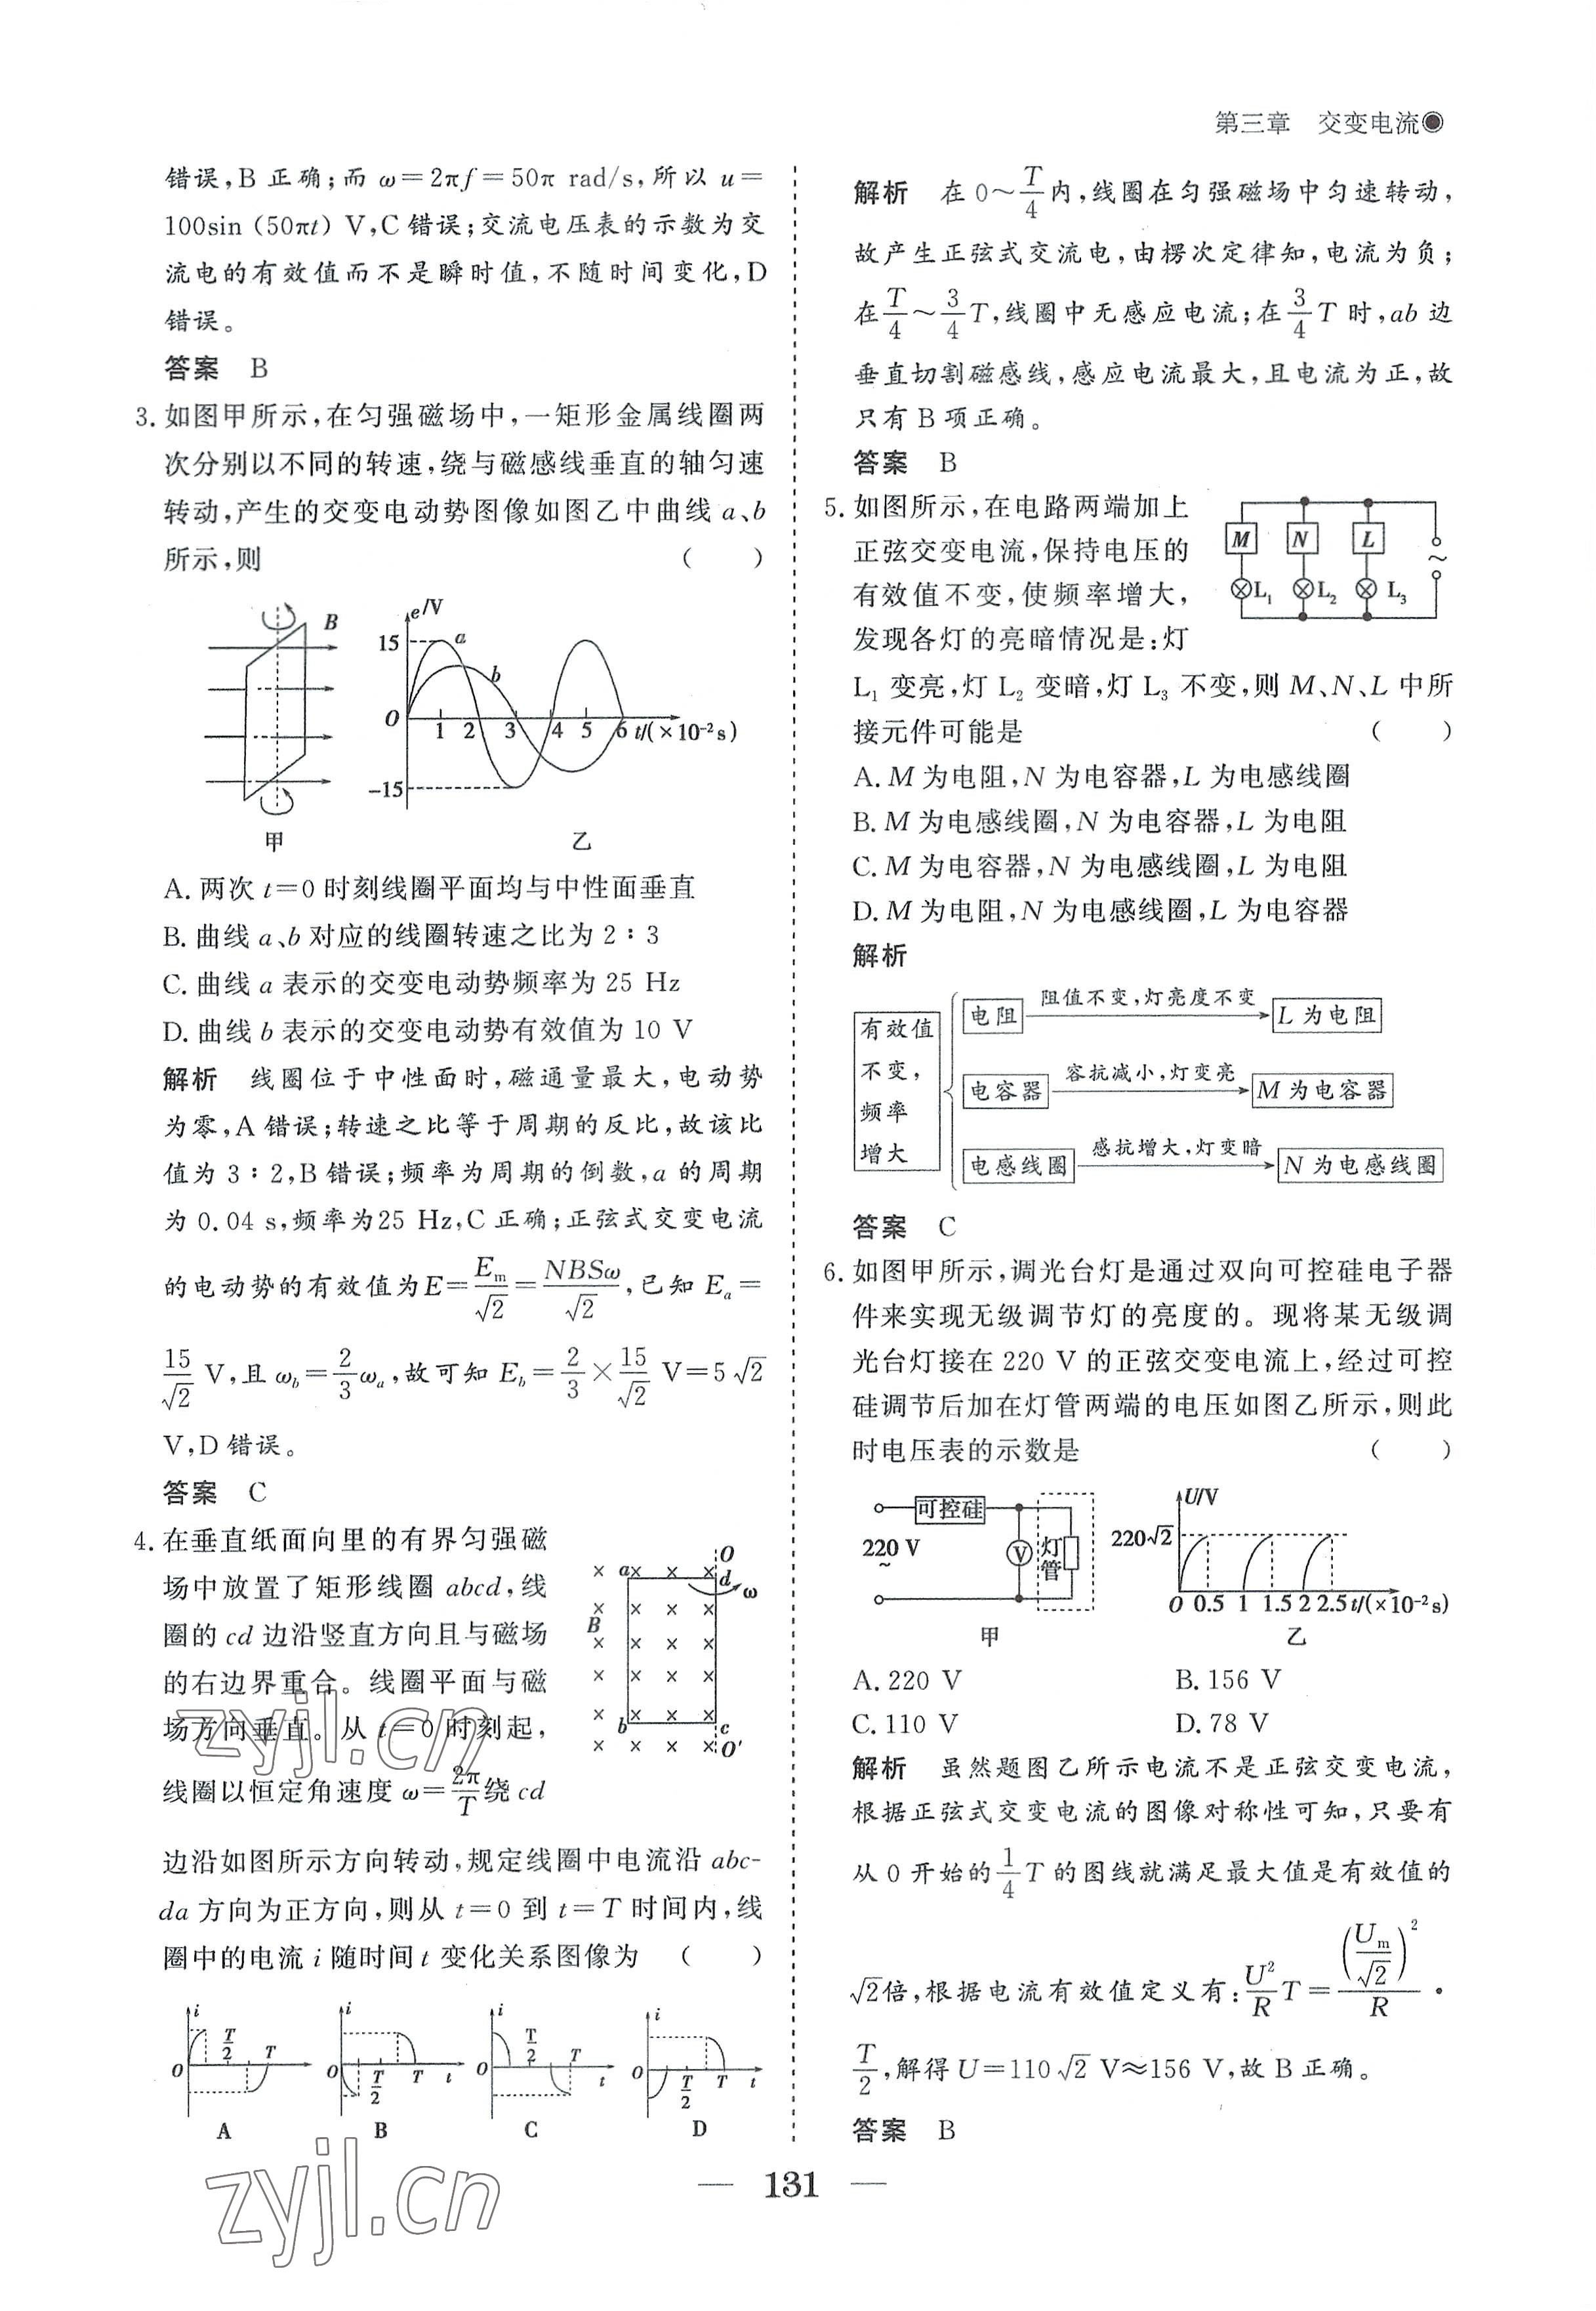 第三章　交变电流
错误,B 正确;而 ω=2πf=50π rad/s,所以 u=
100sin (50πt) V,C 错误;交流电压表的示数为交
流电的有效值而不是瞬时值,不随时间变化,D
错误。
答案　B
3. 如图甲所示,在匀强磁场中,一矩形金属线圈两
次分别以不同的转速,绕与磁感线垂直的轴匀速
转动,产生的交变电动势图像如图乙中曲线 a、b
所示,则　(　　)
B
e/V
15
a
b
O
1 2 3 4 5 6 t/(×10⁻²s)
-15
甲　乙
A. 两次 t=0 时刻线圈平面均与中性面垂直
B. 曲线 a、b 对应的线圈转速之比为 2∶3
C. 曲线 a 表示的交变电动势频率为 25 Hz
D. 曲线 b 表示的交变电动势有效值为 10 V
解析　线圈位于中性面时,磁通量最大,电动势
为零,A 错误;转速之比等于周期的反比,故该比
值为 3∶2,B 错误;频率为周期的倒数,a 的周期
为 0.04 s,频率为25 Hz,C 正确;正弦式交变电流
的电动势的有效值为E=Em/√2=NBSω/√2,已知 Ea=
15/√2 V,且 ωb=2/3ωa,故可知 Eb=2/3×15/√2 V=5√2
V,D 错误。
答案　C
4. 在垂直纸面向里的有界匀强磁
场中放置了矩形线圈 abcd,线
圈的 cd 边沿竖直方向且与磁场
的右边界重合。线圈平面与磁
场方向垂直。从 t=0 时刻起,
线圈以恒定角速度 ω=2π/T绕 cd
边沿如图所示方向转动,规定线圈中电流沿 abc-
da 方向为正方向,则从 t=0 到 t=T 时间内,线
圈中的电流 i 随时间 t 变化关系图像为　(　　)
O
a d ω
B
b c
O′
i T/2 T O
i O T/2 T t
i T/2 T O t
i O T/2 T t
A　B　C　D
解析　在 0～T/4内,线圈在匀强磁场中匀速转动,
故产生正弦式交流电,由楞次定律知,电流为负;
在T/4～3/4T,线圈中无感应电流;在3/4T 时,ab 边
垂直切割磁感线,感应电流最大,且电流为正,故
只有 B 项正确。
答案　B
5. 如图所示,在电路两端加上
正弦交变电流,保持电压的
有效值不变,使频率增大,
发现各灯的亮暗情况是:灯
L₁ 变亮,灯 L₂ 变暗,灯 L₃ 不变,则 M、N、L 中所
接元件可能是　(　　)
M N L
~
L₁ L₂ L₃
A. M 为电阻,N 为电容器,L 为电感线圈
B. M 为电感线圈,N 为电容器,L 为电阻
C. M 为电容器,N 为电感线圈,L 为电阻
D. M 为电阻,N 为电感线圈,L 为电容器
解析
有效值
不变,
频率
增大
电阻　阻值不变,灯亮度不变　L 为电阻
电容器　容抗减小,灯变亮　M 为电容器
电感线圈　感抗增大,灯变暗　N 为电感线圈
答案　C
6. 如图甲所示,调光台灯是通过双向可控硅电子器
件来实现无级调节灯的亮度的。现将某无级调
光台灯接在 220 V 的正弦交变电流上,经过可控
硅调节后加在灯管两端的电压如图乙所示,则此
时电压表的示数是　(　　)
可控硅
220 V
~
V
灯管
U/V
220√2
O 0.5 1 1.5 2 2.5 t/(×10⁻²s)
甲　乙
A. 220 V　B. 156 V
C. 110 V　D. 78 V
解析　虽然题图乙所示电流不是正弦交变电流,
根据正弦式交变电流的图像对称性可知,只要有
从 0 开始的1/4T 的图线就满足最大值是有效值的
√2倍,根据电流有效值定义有:U²/R T=(Um/√2)²/R ·
T/2,解得 U=110√2 V≈156 V,故 B 正确。
答案　B
zyjl.cn
zyjl.cn
— 131 —